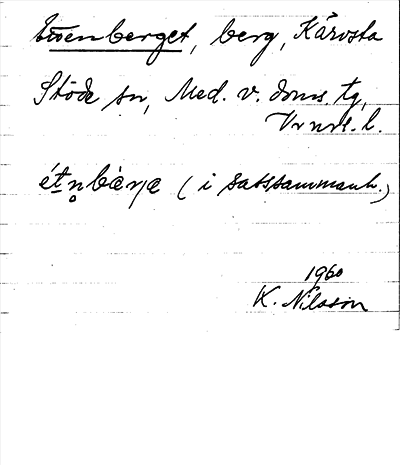 berget, berg, Kärvsta
Stöde sn, Med. v. doms. tg,
Vrnrl. l.
(i satssammanh.)
1960
K. Nilsson